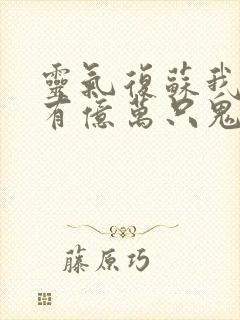 靈氣復蘇我
有億萬只鬼
藤原巧